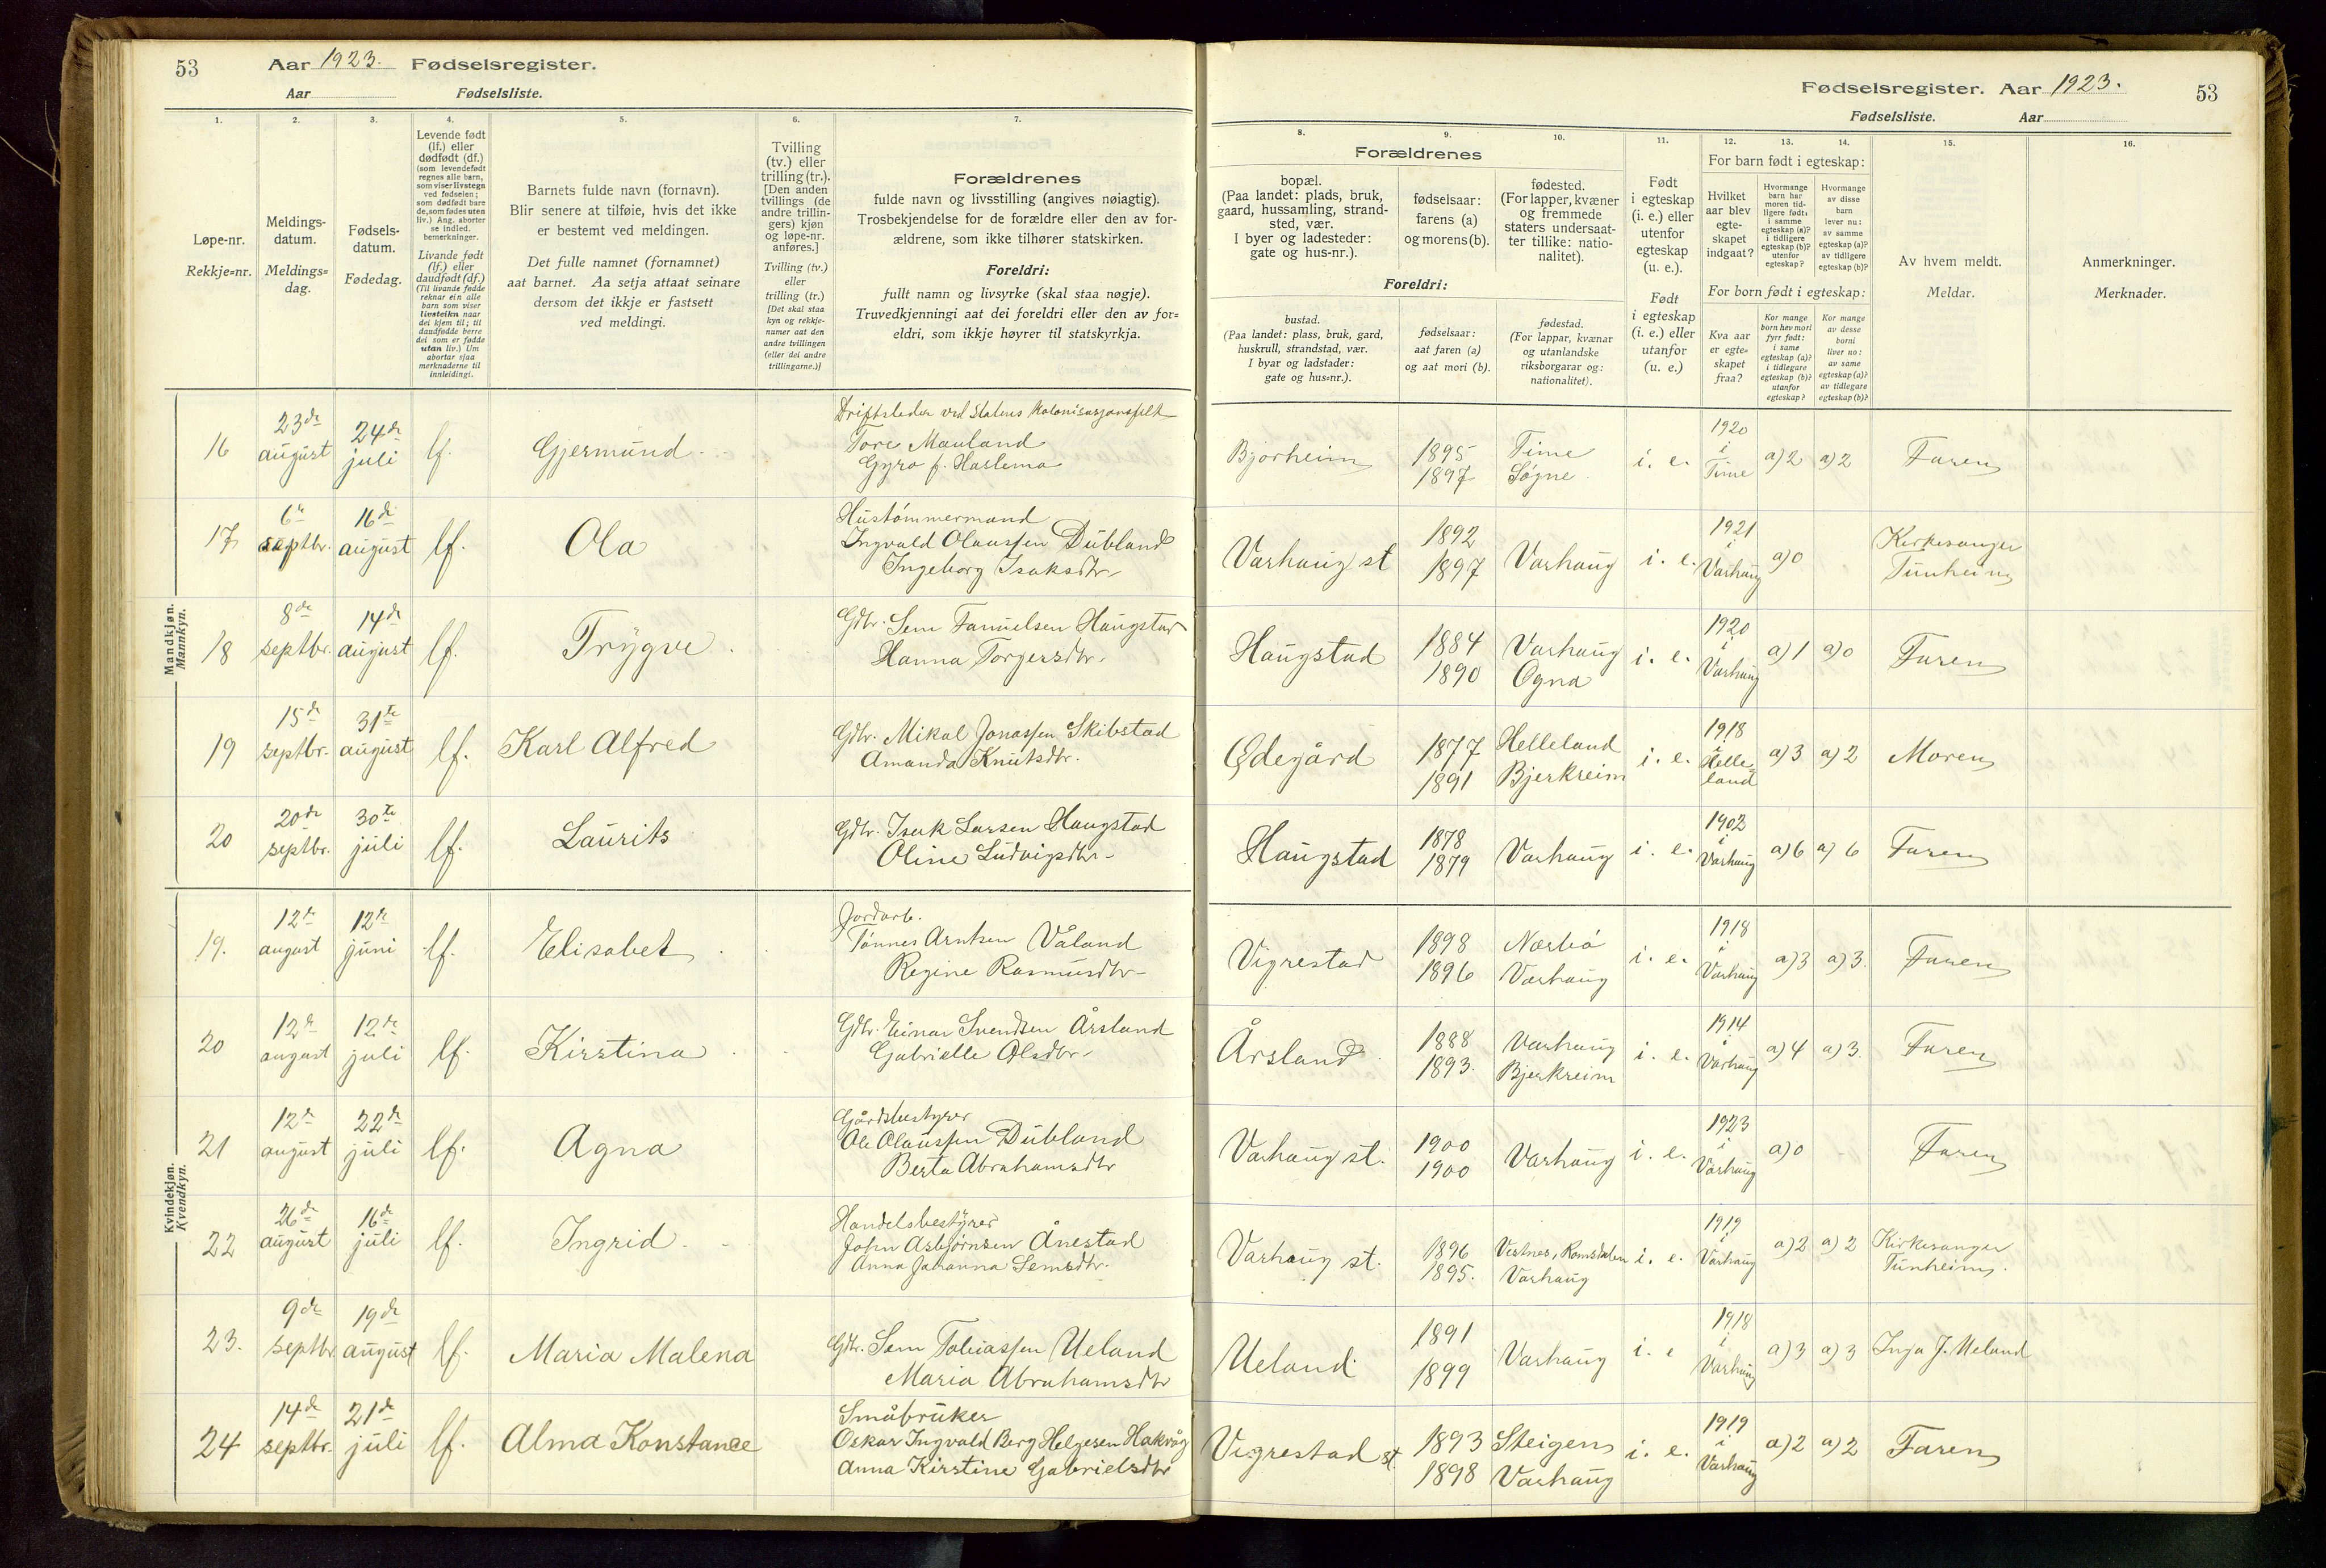 53 Aar 1923. Fødselsregister.
Aar Fødselsliste.
1. 2. 3. 4. 5. 6. 7.
Løpe-nr.
Rekkje-nr.
Meldings-
datum.
Meldings-
dag.
Fødsels-
datum.
Fødedag.
Levende født
(lf.) eller
dødfødt (df.)
(som levendefødt
regnes alle barn,
som viser livstegn
ved fødselen;
som dødfødt bare
de, som fødes uten
liv.) Ang. aborter
se indled.
bemerkninger.
Livande født
(lf.) eller
daudfødt (df.)
(Til livande fødde
reknar ein alle
barn som viser
livsteikn naar
dei kjem til; til
daudfødde berre
dei som er fødde
utan liv.) Um
abortar sjaa
merknaderne til
innleidingi.
Barnets fulde navn (fornavn).
Blir senere at tilføie, hvis det ikke
er bestemt ved meldingen.
Det fulle namnet (fornamnet)
aat barnet. Aa setja attaat seinare
dersom det ikkje er fastsett
ved meldingi.
Tvilling
(tv.) eller
trilling (tr.).
[Den anden
tvillings (de
andre trillin-
gers) kjøn
og løpe-nr.
anføres.]
Tvilling (tv.)
eller
trilling (tr.)
[Det skal staa
kyn og rekkje-
numer aat den
andre tvillingen
(eller dei andre
trillingarne.)]
Forældrenes
fulde navn og livsstilling (angives nøiagtig).
Trosbekjendelse for de forældre eller den av for-
ældrene, som ikke tilhører statskirken.
Foreldri:
fullt namn og livsyrke (skal staa nøgje).
Truvedkjenningi aat dei foreldri eller den av for-
eldri, som ikkje høyrer til statskyrkja.
Mandkjøn.
Mannkyn.
16 23de august 24de juli lf. Gjermund Driftsleder ved Statens Kolonisasjonsfelt
Tore Mauland
Gyro f. Haslemo
17 6te septbr. 16de august lf. Ola Hustømmermand
Ingvald Olaussen Dubland
Ingeborg Isaksdtr.
18 8de septbr. 14de august lf. Trygve Gdbr. Sem Samuelsen Haugstad
Hanna Torgersdtr.
19 15de septbr. 31te august lf. Karl Alfred Gdbr. Mikal Jonassen Skibstad
Amanda Knutsdtr.
20 20de septbr. 30te juli lf. Laurits Gdbr. Isak Larsen Haugstad
Oline Ludvigsdtr.
Kvindekjøn.
Kvendkyn.
19. 12te august 12te juni lf. Elisabet Jordarb.
Tønnes Arntsen Våland
Regine Rasmusdtr.
20 12te august 12te juli lf. Kirstina Gdbr. Einar Svendsen Årsland
Gabrielle Olsdtr.
21 12te august 22de juli lf. Agna Gårdsbestyrer
Ole Olaussen Dubland
Berta Abrahamsdtr
22 26de august 16de juli lf. Ingrid Handelsbestyrer
John Asbjørnsen Ånestad
Anna Johanna Semsdtr.
23. 9de septbr 19de august lf. Maria Malena Gdbr. Sem Tobiassen Ueland
Maria Abrahamsdtr
24 14de septbr. 21de juli lf. Alma Konstance Småbruker
Oskar Ingvald Berg Helgesen Hakvåg
Anna Kirstine Gabrielsdtr
Fødselsregister. Aar 1923. 53
Fødselsliste. Aar
8. 9. 10. 11. 12. 13. 14. 15. 16.
Forældrenes
bopæl.
(Paa landet: plads, bruk,
gaard, hussamling, strand-
sted, vær.
I byer og ladesteder:
gate og hus-nr.).
fødselsaar:
farens (a)
og morens (b).
fødested.
(For lapper, kvæner
og fremmede
staters undersaat-
ter tillike: natio-
nalitet).
Foreldri:
bustad.
(Paa landet: plass, bruk, gard,
huskrull, strandstad, vær.
I byar og ladstader:
gate og hus-nr.).
fødselsaar:
aat faren (a)
og aat mori (b).
fødestad.
(For lappar, kvænar
og utanlandske
riksborgarar og:
nationalitet).
Født
i egteskap
(i. e.) eller
utenfor
egteskap
(u. e.).
Født
i egteskap
(i. e.) eller
utanfor
(u. e.)
For barn født i egteskap:
Hvilket
aar blev
egte-
skapet
indgaat?
Hvormange
barn har
moren tid-
ligere født:
i samme
egteskap (a)?
i tidligere
egteskap (b)?
utenfor
egteskap?
Hvormange
av disse
barn
lever nu:
av samme
egteskap (a)?
av tidligere
egteskap (b)?
For born født i egteskap:
Kva aar
er egte-
skapet
fraa?
Kor mange
born hev mori
fyrr født:
i same
egteskap (a)?
i tidlegare
egteskap (b)?
utanfor
egteskap?
Kor mange
av desse
borni
liver no:
av same
egteskap (a)?
av tidlegare
egteskap (b)?
Av hvem meldt.
Meldar.
Anmerkninger.
Merknader.
Bjorheim 1895 1897 Time Søgne i. e. 1920 i Time a) 2 a) 2 Faren
Varhaug st 1892 1897 Varhaug i. e. 1921 i Varhaug a) 0 Kirkesanger Tunheim
Haugstad 1884 1890 Varhaug Ogna i. e. 1920 i Varhaug a) 1 a) 0 Faren
Ødegård 1877 1891 Helleland Bjerkreim i. e. 1918 i Helleland a) 3 a) 2 Moren
Haugstad 1878 1879 Varhaug i. e. 1902 i Varhaug a) 6 a) 6 Faren
Vigrestad 1898 1896 Nærbø Varhaug i. e. 1918 i Varhaug a) 3 a) 3. Faren
Årsland 1888 1893. Varhaug Bjerkreim i. e. 1914 i Varhaug a) 4 a) 3. Faren
Varhaug st. 1900 1900 Varhaug i. e. 1923 i Varhaug a) 0 - Faren
Varhaug st. 1896 1895. Vestnes, Romsdalen Varhaug i. e. 1919 i Varhaug a) 2 a) 2 Kirkesanger Tunheim.
Ueland 1891 1899 Varhaug i. e 1918 i Varhaug a) 3 a) 3 Inga J. Ueland
Vigrestad st. 1893 1898 Steigen Varhaug i. e. 1919 i Varhaug a) 2 a) 2 Faren